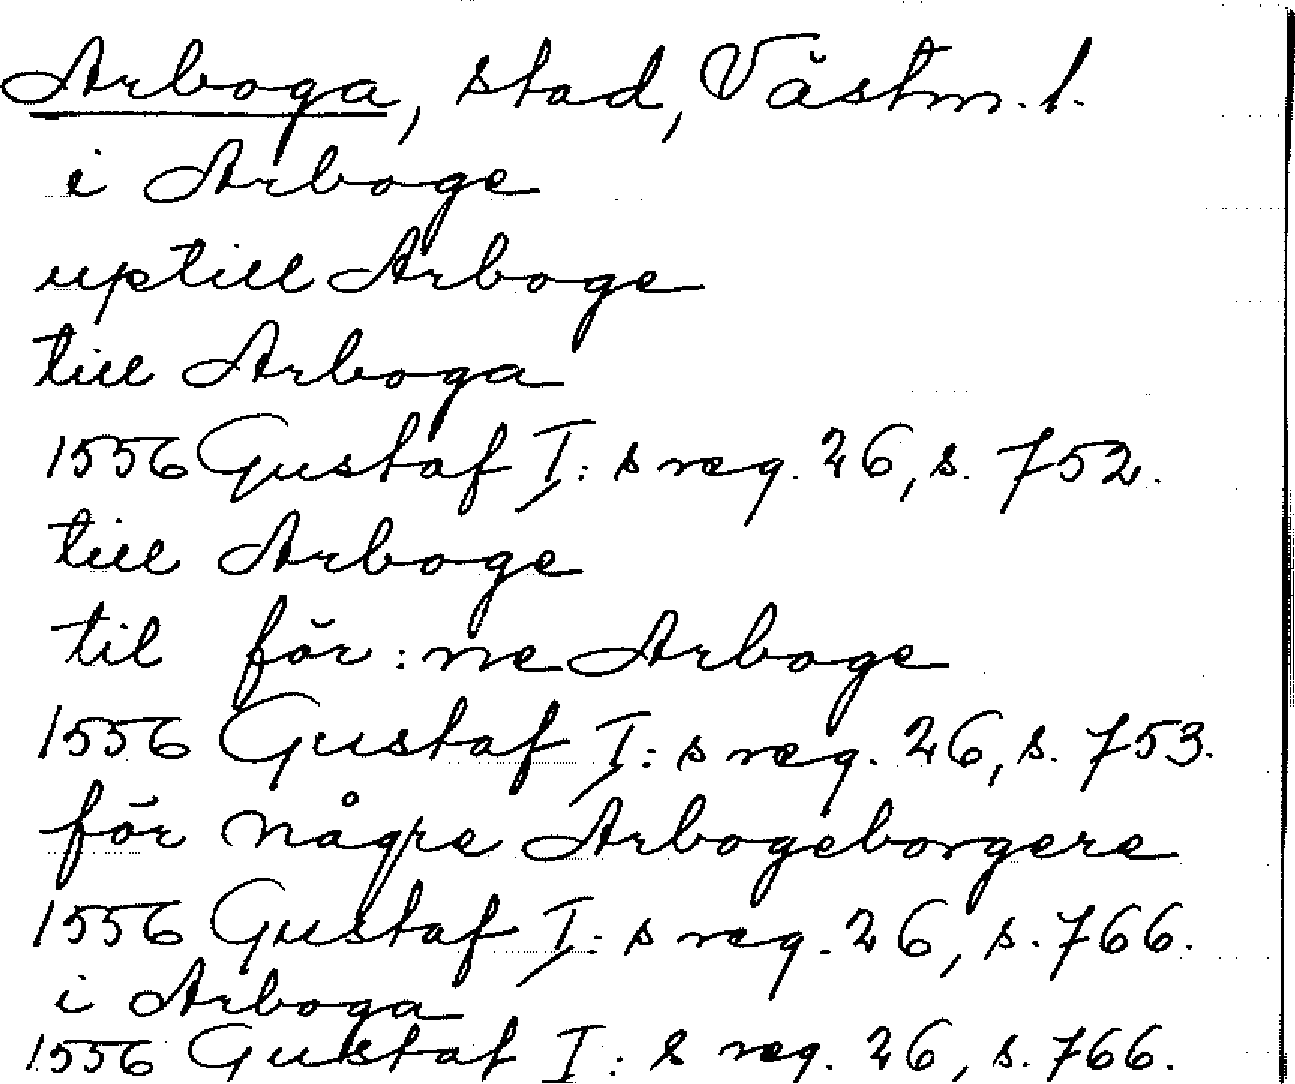 Arboga, stad, Västm. l.
i Arboge
uptill Arboge
till Arboga
1556 Gustaf I: s reg. 26, s. 752.
till Arboge
til för:ne Arboge
1556 Gustaf I: s reg. 26, s. 753.
för någre Arbogeborgere
1556 Gustaf I: s reg. 26, s. 766.
i Arboga
1556 Gustaf I: s reg. 26, s. 766.